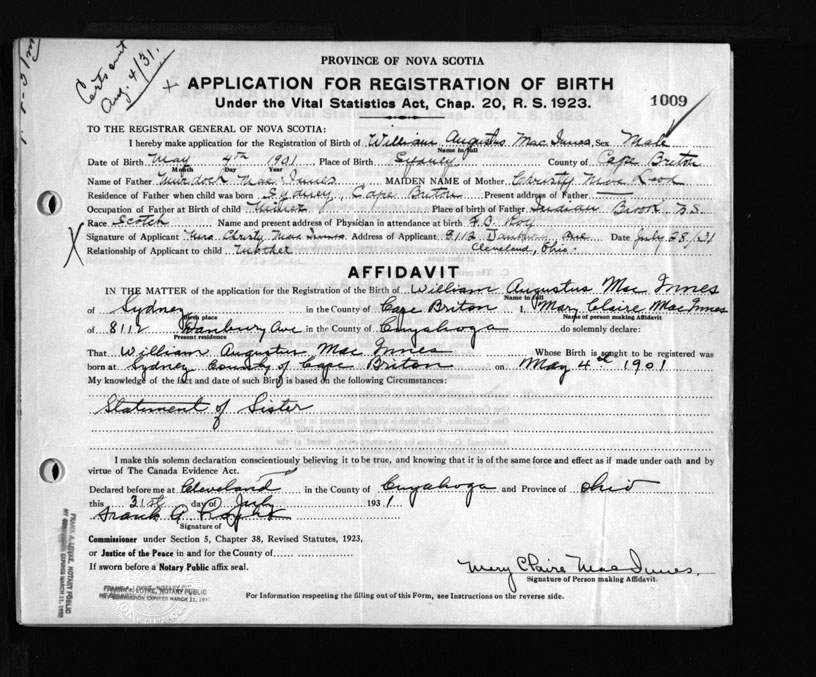 Certs sent
Aug. 4/31.
PROVINCE OF NOVA SCOTIA
APPLICATION FOR REGISTRATION OF BIRTH
Under the Vital Statistics Act, Chap. 20, R. S. 1923.
1009
TO THE REGISTRAR GENERAL OF NOVA SCOTIA:
I hereby make application for the Registration of Birth of William Augustus Mac Innes, Sex Male
Name in full
Date of Birth May 4th 1901, Place of Birth Sydney County of Cape Breton
Month Day Year
Name of Father Murdoch Mac Innes MAIDEN NAME of Mother Christy Mac Leod
Residence of Father when child was born Sydney, Cape Briton Present address of Father
Occupation of Father at Birth of child Place of birth of Father Indian Brook N.S.
Race Scotch Name and present address of Physician in attendance at birth Roy
Signature of Applicant Mrs Christy Mac Innes Address of Applicant 8112 Ave Date July 28/31
Relationship of Applicant to child Mother Cleveland, Ohio.
AFFIDAVIT
IN THE MATTER of the application for the Registration of the Birth of William Augustus Mac Innes
Name in full
of Sydney in the County of Cape Briton I, Mary Claire MacInnes
Birth place Name of person making Affidavit
of 8112 Danbury Ave in the County of Cuyahoga do solemnly declare:
Present residence
That William Augustus Mac Innes Whose Birth is sought to be registered was
born at Sydney County of Cape Briton on May 4th 1901
My knowledge of the fact and date of such Birth is based on the following Circumstances:
Statement of Sister
I make this solemn declaration conscientiously believing it to be true, and knowing that it is of the same force and effect as if made under oath and by
virtue of The Canada Evidence Act.
Declared before me at Cleveland in the County of Cuyahoga and Province of Ohio
this 31st day of July 1931
Frank A.
Signature of
Commissioner under Section 5, Chapter 38, Revised Statutes, 1923,
or Justice of the Peace in and for the County of
If sworn before a Notary Public affix seal.
Mary Claire MacInnes.
Signature of Person making Affidavit.
NOTARY PUBLIC
COMMISSION EXPIRES MARCH
For Information respecting the filling out of this Form, see Instructions on the reverse side.